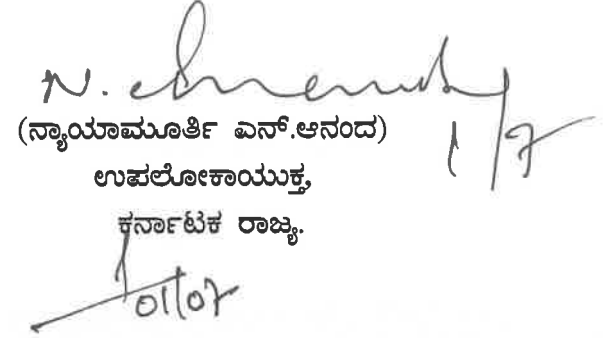 N. Ananda
1/7
(ನ್ಯಾಯಾಮೂರ್ತಿ ಎನ್.ಆನಂದ)
ಉಪಲೋಕಾಯುಕ್ತ,
ಕರ್ನಾಟಕ ರಾಜ್ಯ.
01/07